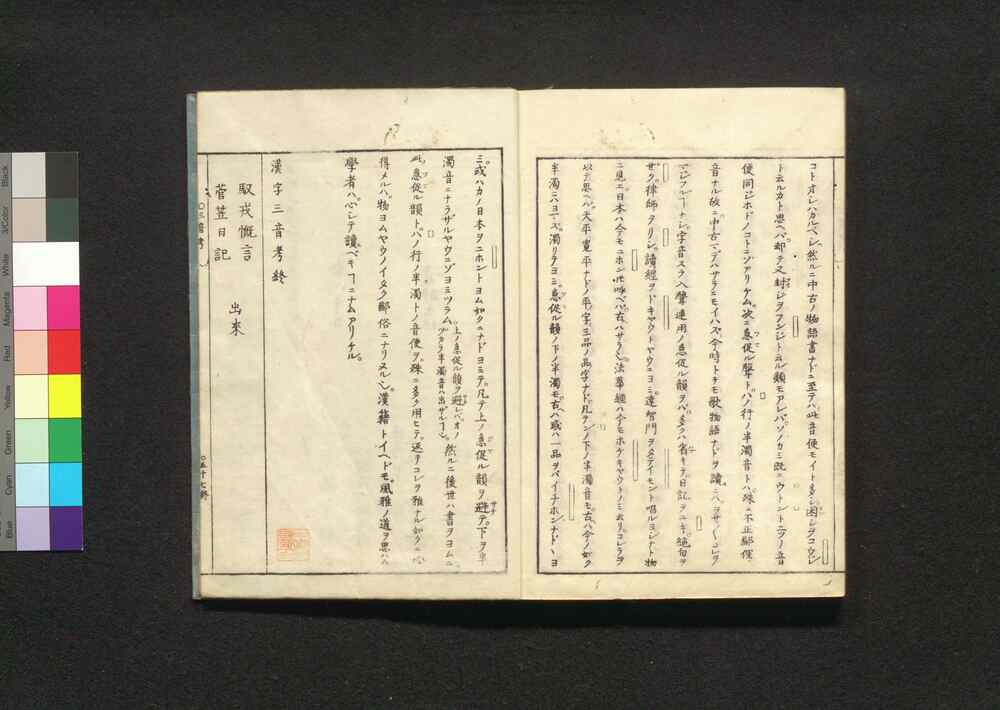 コトオシハカルベシ然ルニ中古ノ物語書ナドニ至テハ此音便モイト多シ困シヲコウシ
トルカト思ヘバ却テ又封シヲフンジト云ル類モアレバソノカミ既ニウトントニツノ音
使同ジホドノコトニゾアリケム次ニ急促ル聲トハノ行ノ半濁音トハ殊ニ不正鄙俚ノ
音ナル故ニ中古マデハサラニモイハズ今時トテモ歌物語ナドヲ讀ニハコレヲ
字音スラ入聲連用ノ急促ル韻ヲバ多クハ省キテ日記ヲニキ絶句ヲ
ゼク律師ヲリシ讀經ヲドキヤウトヤウニヨミ達智門ヲタテイモント唱ルヨシナド物
ニ見エ日本ハ今モニホン此呼ベバ古ハサラ也法華經ハ今モホケキヤウトノミ云リコレラヲ
以テ思ヘバ天平寛平ナドノ平ノ字三品ノ品ノ字ナド凡テンノ下ノ半濁音モ古ハ今ノ如ク
半濁ニハヨマズ濁リテヨミ急促ル韻ノ下ノ半濁モ古ハ或ハ一品ヲバイチホンナドヽヨ
ミ或ハカノ日本ヲニホントヨム如クニナドヨミテ凡テ上ノ急促ル韻ヲ避テ下ヲ半
濁音ニナラザルヤウニゾヨミツラム上ノ急促ル韻ヲ避レバオノヅカラ半濁音ハ出ザレバナリ然ルニ後世ハ書ヲヨムニ
此急促ル韻トハノ行ノ半濁トノ音便ヲ殊ニ多ク用ヒテ返リコレヲ雅ナル如クニ心
得メルハ物ヨムヤウノイタク鄙俗ニナリヌル也漢籍トイヘドモ風雅ノ道ヲ思ハム
學者ハ心シテ讀ベキコトニナムアリケル
漢字三音考終
馭戎慨言
菅笠日記 出來
〇三音考
〇五十七終